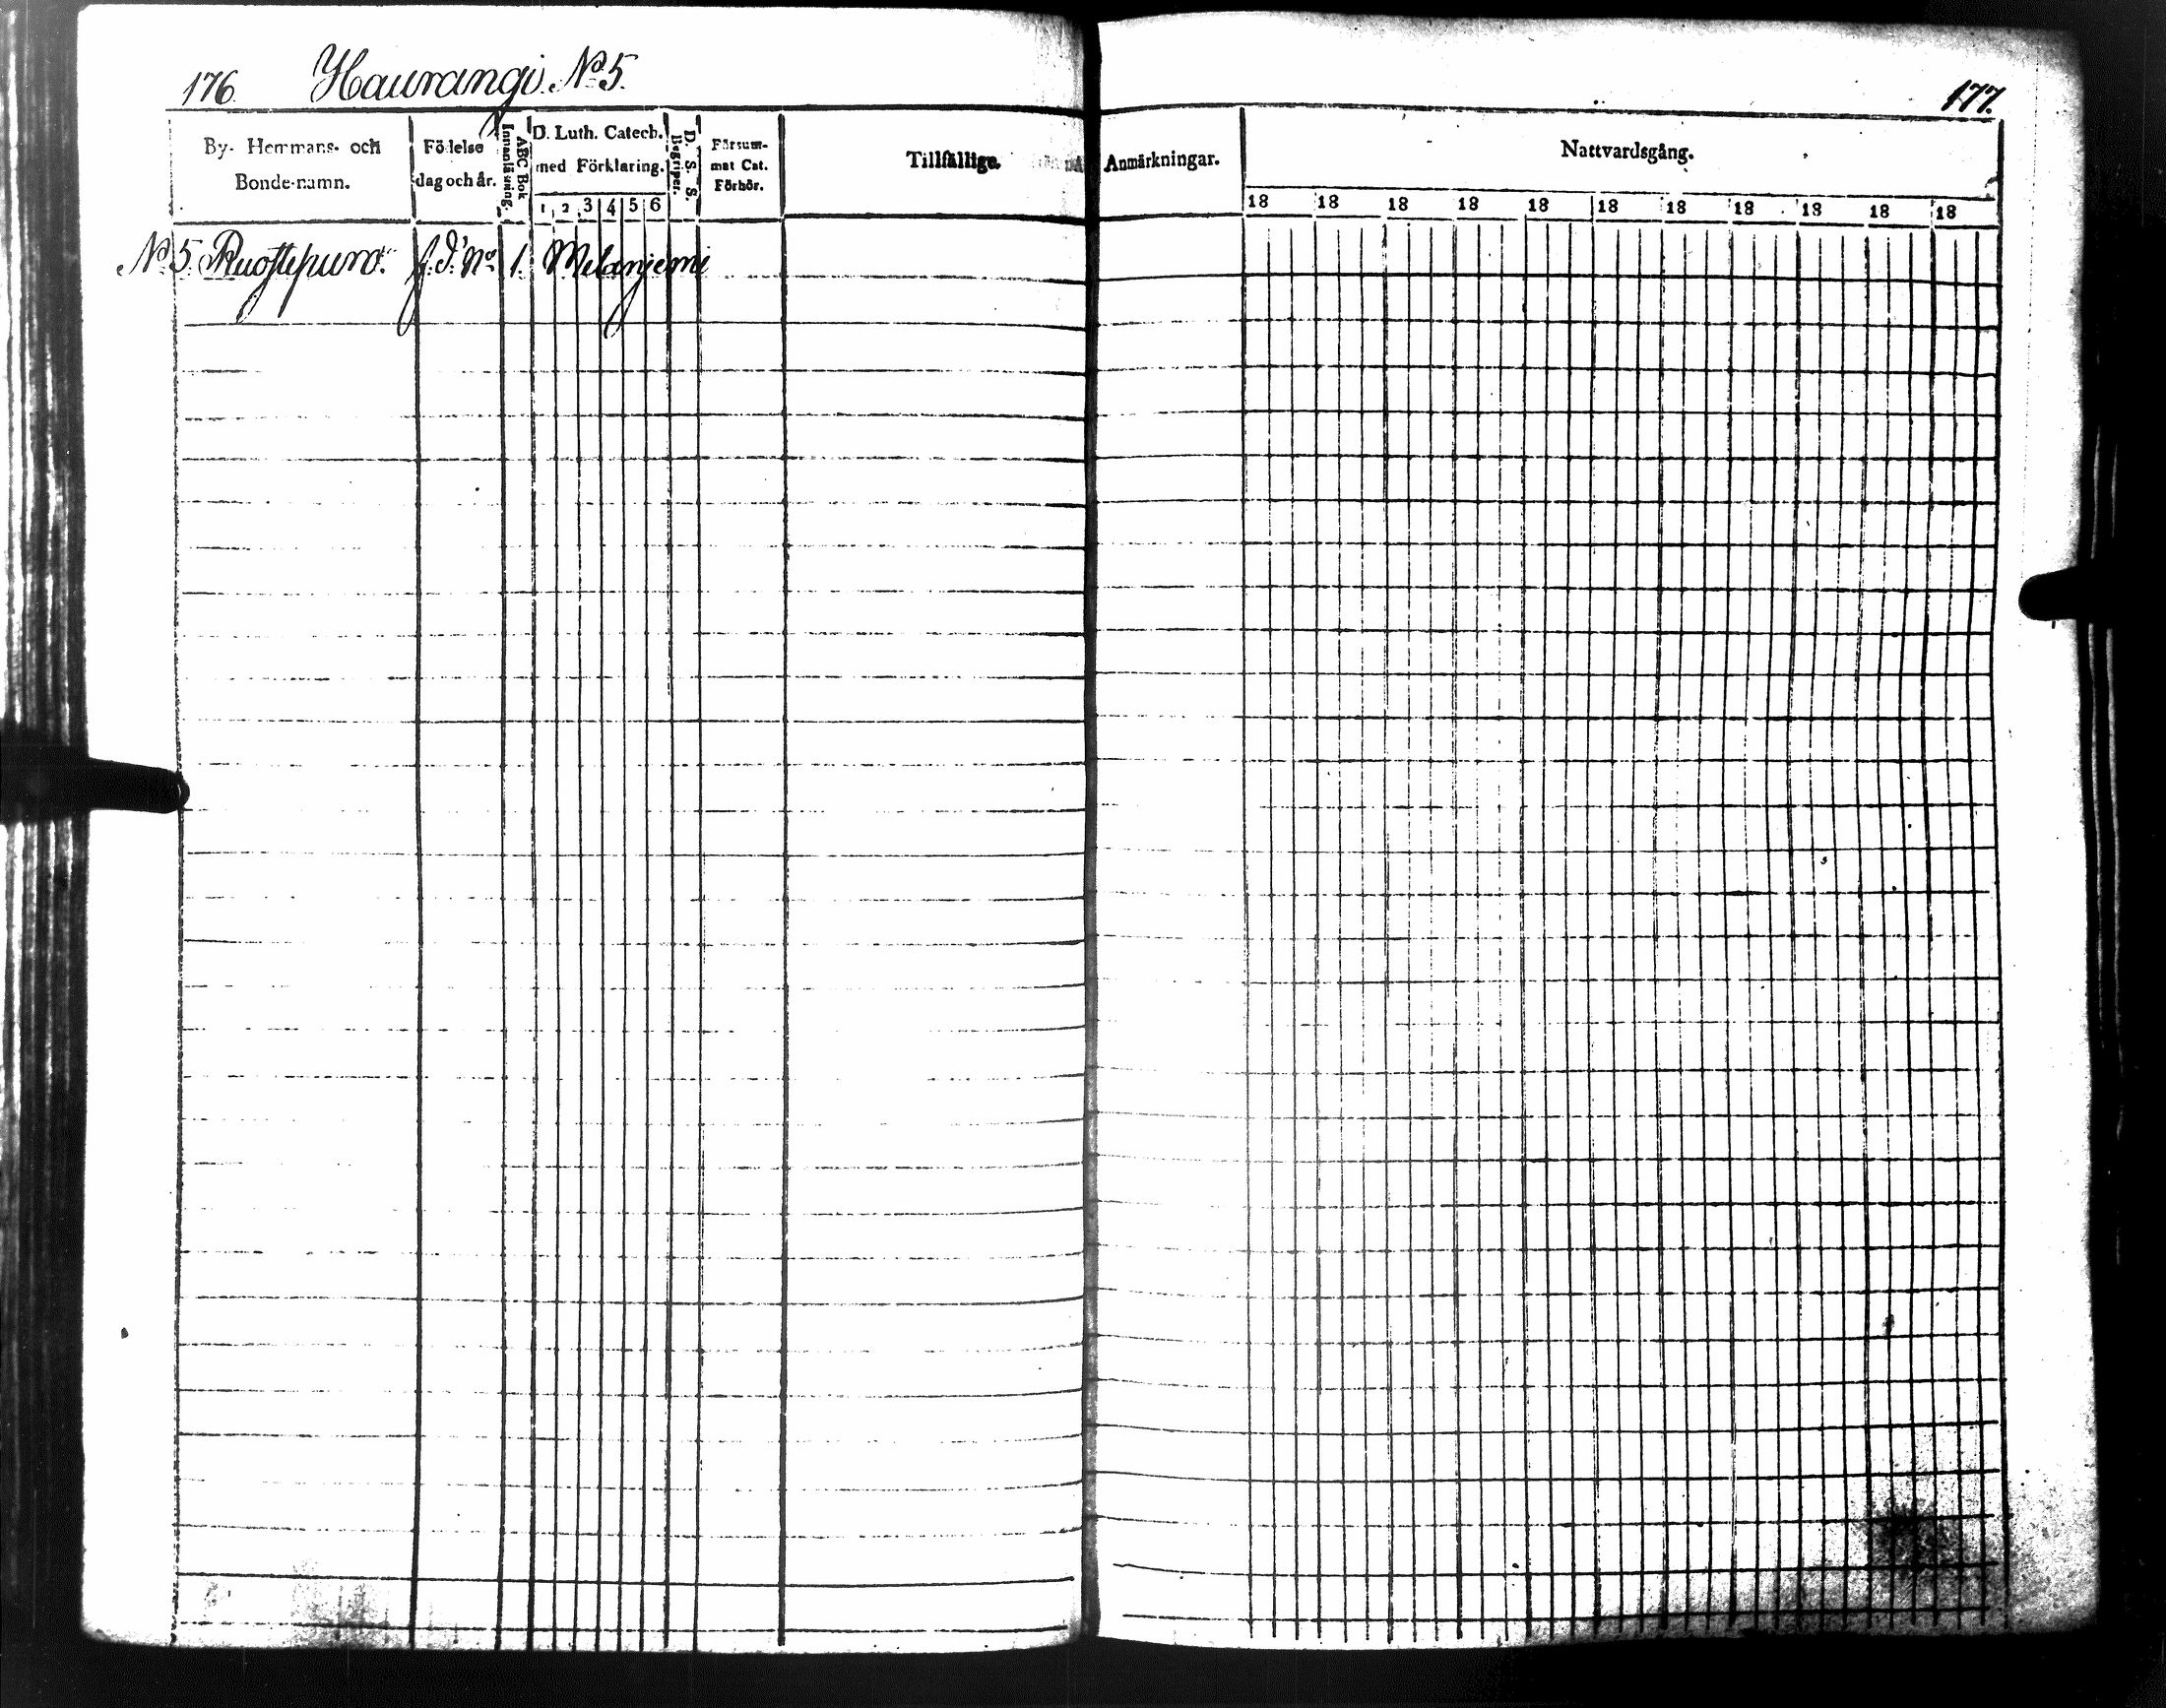 176. Haurangi. No 5.
177.
By- Hemmans- och Bonde-namn.
Födelse dag och år.
ABC Bok Innanläsning.
D. Luth. Catech. med Förklaring.
1 2 3 4 5 6
D. S. S. Begriper.
Försummat Cat. Förhör.
Tillfällige Anmärkningar.
Nattvardsgång.
18 18 18 18 18 18 18 18 18 18 18
No 5. Ruostepuro. f. d. No 1. Melanjemi